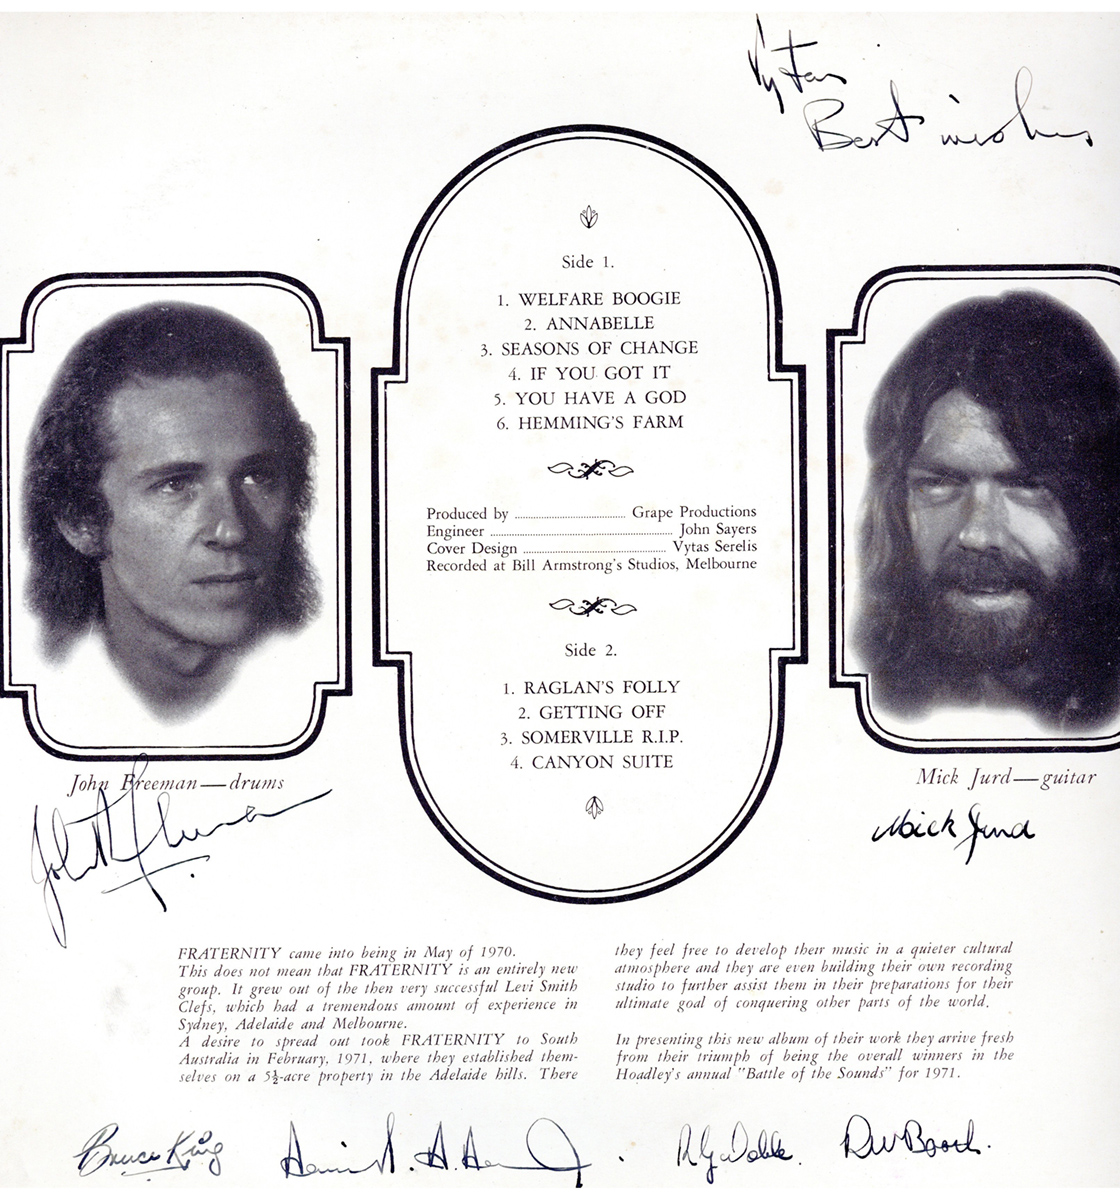 Vytas
Best wishes
Side 1.
1. WELFARE BOOGIE
2. ANNABELLE
3. SEASONS OF CHANGE
4. IF YOU GOT IT
5. YOU HAVE A GOD
6. HEMMING'S FARM
Produced by ........................................ Grape Productions
Engineer ................................................................ John Sayers
Cover Design .................................................. Vytas Serelis
Recorded at Bill Armstrong's Studios, Melbourne
Side 2.
1. RAGLAN'S FOLLY
2. GETTING OFF
3. SOMERVILLE R.I.P.
4. CANYON SUITE
John Freeman — drums
Mick Jurd — guitar
John Freeman
Mick Jurd
FRATERNITY came into being in May of 1970.
This does not mean that FRATERNITY is an entirely new
group. It grew out of the then very successful Levi Smith
Clefs, which had a tremendous amount of experience in
Sydney, Adelaide and Melbourne.
A desire to spread out took FRATERNITY to South
Australia in February, 1971, where they established them-
selves on a 5½-acre property in the Adelaide hills. There
they feel free to develop their music in a quieter cultural
atmosphere and they are even building their own recording
studio to further assist them in their preparations for their
ultimate goal of conquering other parts of the world.
In presenting this new album of their work they arrive fresh
from their triumph of being the overall winners in the
Hoadley's annual "Battle of the Sounds" for 1971.
Bruce King